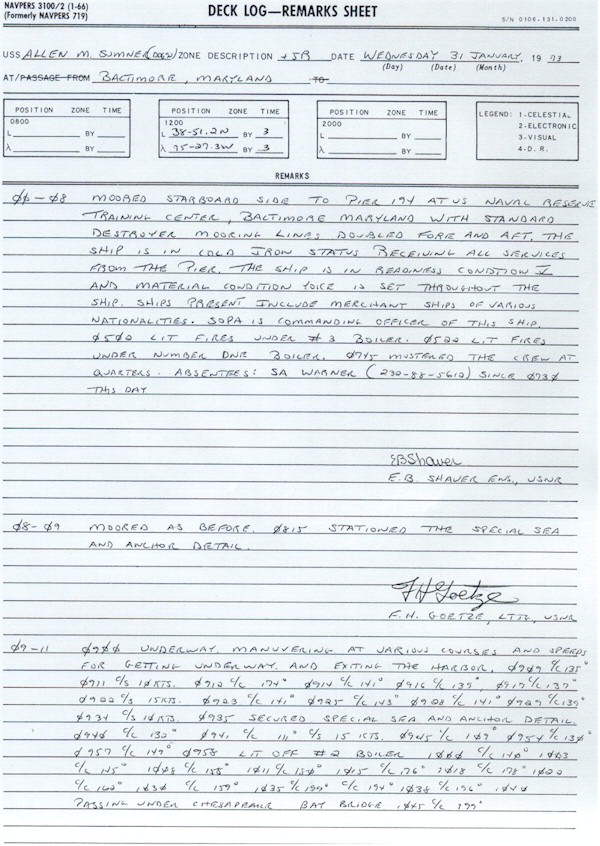 NAVPERS 3100/2 (1-66)
(Formerly NAVPERS 719)
DECK LOG—REMARKS SHEET
S/N 0106-131-0200
USS ALLEN M. SUMNER (DD692) ZONE DESCRIPTION +5R DATE WEDNESDAY 31 JANUARY, 19 73
(Day) (Date) (Month)
AT/PASSAGE FROM BALTIMORE, MARYLAND TO
POSITION ZONE TIME
0800
L BY
λ BY
POSITION ZONE TIME
1200
L 38-51.2N BY 3
λ 75-27.3W BY 3
POSITION ZONE TIME
2000
L BY
λ BY
LEGEND: 1-CELESTIAL
2-ELECTRONIC
3-VISUAL
4-D. R.
REMARKS
ØØ-Ø8 MOORED STARBOARD SIDE TO PIER 194 AT US NAVAL RESERVE
TRAINING CENTER, BALTIMORE MARYLAND WITH STANDARD
DESTROYER MOORING LINES DOUBLED FORE AND AFT. THE
SHIP IS IN COLD IRON STATUS RECEIVING ALL SERVICES
FROM THE PIER. THE SHIP IS IN READINESS CONDTION V
AND MATERIAL CONDITION YOKE IS SET THROUGHOUT THE
SHIP. SHIPS PRESENT INCLUDE MERCHANT SHIPS OF VARIOUS
NATIONALITIES. SOPA IS COMMANDING OFFICER OF THIS SHIP.
Ø5ØØ LIT FIRES UNDER #3 BOILER. Ø5ØØ LIT FIRES
UNDER NUMBER BOILER. Ø745 MUSTERED THE CREW AT
QUARTERS. ABSENTEES: SA WARNER (230-88-5610) SINCE Ø730
THIS DAY
EBShaver
E.B. SHAVER ENS., USNR
Ø8-Ø9 MOORED AS BEFORE. Ø815 STATIONED THE SPECIAL SEA
AND ANCHOR DETAIL.
FHGoetze
F.H. GOETZE, LTJG, USNR
Ø9-11 Ø9ØØ UNDERWAY. MANUVERING AT VARIOUS COURSES AND SPEEDS
FOR GETTING UNDERWAY AND EXITING THE HARBOR. Ø9Ø9 C/C 135°
Ø911 C/S 1ØKTS. Ø912 C/C 174° Ø914 C/C 141° Ø916 C/C 139°, Ø917 C/C 137°
Ø922 C/S 15KTS. Ø923 C/C 141° Ø925 C/C 143° Ø928 C/C 141° Ø929 C/C 139°
Ø934 C/S 1ØKTS. Ø935 SECURED SPECIAL SEA AND ANCHOR DETAIL
Ø940 C/C 132° Ø941 C/C 111° C/S 15 KTS. Ø945 C/C 149° Ø954 C/C 130°
Ø957 C/C 149° Ø958 LIT OFF #2 BOILER 1ØØØ C/C 140° 1ØØ3
C/C 145° 1ØØ8 C/C 158° 1Ø11 C/C 180° 1Ø15 C/C 176° 1Ø18 C/C 178° 1Ø20
C/C 160° 1Ø30 C/C 159° 1Ø35 C/C 199° C/C 194° 1Ø38 C/C 196° 1Ø40
PASSING UNDER CHESAPEAKE BAY BRIDGE 1Ø45 C/C 199°